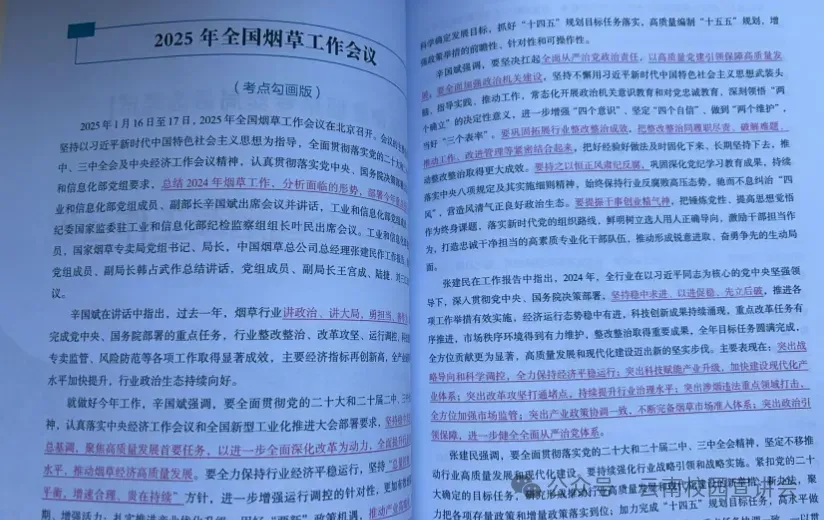 2025 年全国烟草工作会议
(考点勾画版)
2025 年 1 月 16 日至 17 日，2025 年全国烟草工作会议在北京召开。会议的主
坚持以习近平新时代中国特色社会主义思想为指导，全面贯彻落实党的二十大和二
中、三中全会及中央经济工作会议精神，认真贯彻落实党中央、国务院决策部署
和信息化部党组要求，总结 2024 年烟草工作，分析面临的形势，部署今年
业和信息化部党组成员、副部长辛国斌出席会议并讲话，工业和信息化部
纪委国家监委驻工业和信息化部纪检监察组组长叶民出席会议。工业和信息化
员，国家烟草专卖局党组书记、局长，中国烟草总公司总经理张建民作工作报告
党组成员、副局长韩占武作总结讲话，党组成员、副局长王宫成、陆捷、刘三江
议。
辛国斌在讲话中指出，过去一年，烟草行业讲政治、讲大局，勇担当、
完成党中央、国务院部署的重点任务，行业整改整治、改革攻坚、运行调控、科技
专卖监管、风险防范等各项工作取得显著成效，主要经济指标再创新高，全产业
水平加快提升，行业政治生态持续向好。
就做好今年工作，辛国斌强调，要全面贯彻党的二十大和二十届二中、三中
神，认真落实中央经济工作会议和全国新型工业化推进大会部署要求，坚持稳中
总基调，聚焦高质量发展首要任务，以进一步全面深化改革为动力，全面提升
水平，推动烟草经济高质量发展。要全力保持行业经济平稳运行，坚持“总量
平衡，增速合理、贵在持续”方针，进一步增强运行调控的针对性，更加有效
期、增强活力；扎实推进产业优化升级，用好“两新”政策机遇，推动产业
科学确定发展目标，抓好“十四五”规划目标任务落实，高质量编制“十五五”规划，增
强政策举措的前瞻性、针对性和可操作性。
辛国斌强调，要坚决扛起全面从严治党政治责任，以高质量党建引领保障高质量发
展。要全面加强政治机关建设，坚持不懈用习近平新时代中国特色社会主义思想武装头
脑、指导实践、推动工作，常态化开展政治机关意识教育和对党忠诚教育，深刻领悟“两
个确立”的决定性意义，进一步增强“四个意识”、坚定“四个自信”、做到“两个维护”，
当好“三个表率”。要巩固拓展行业整改整治成效，把整改整治同履职尽责、破解难题、
推动工作、改进管理等紧密结合起来，把好经验好做法及时固化下来、长期坚持下去，推
动整改整治取得更大成效。要持之以恒正风肃纪反腐，巩固深化党纪学习教育成果，持续
落实中央八项规定及其实施细则精神，始终保持行业反腐败高压态势，驰而不息纠治“四
风”，营造风清气正良好政治生态。要提振干事创业精气神，把锤炼党性、提高思想觉悟
作为终身课题，落实新时代党的组织路线，鲜明树立选人用人正确导向，激励干部担当作
为，打造忠诚干净担当的高素质专业化干部队伍，推动形成锐意进取、奋勇争先的生动局
面。
张建民在工作报告中指出，2024 年，全行业在以习近平同志为核心的党中央坚强领
导下，深入贯彻党中央、国务院决策部署，坚持稳中求进、以进促稳、先立后破，推进各
项工作举措有效实施，经济运行态势稳中有进，科技创新成果持续涌现，重点改革任务有
序推进，市场秩序环境得到有力维护，整改整治取得重要成果，全年目标任务圆满完成，
全方位贡献更为显著，高质量发展和现代化建设迈出新的坚实步伐。主要表现在：突出战
略导向和科学调控，全力保持经济平稳运行；突出科技赋能产业升级，加快建设现代化产
业体系；突出改革攻坚打通堵点，持续提升行业治理水平；突出涉烟违法重点领域打击，
全方位加强市场监管；突出产业政策协调一致，不断完备烟草市场准入体系；突出政治引
领保障，进一步健全全面从严治党体系。
张建民强调，要全面贯彻党的二十大和二十届二中、三中全会精神，坚定不移推
动行业高质量发展和现代化建设。要持续强化行业战略引领和战略实施。紧扣党的二
十大确定的目标任务，研究形成推动行业高质量发展和现代化建设的新举措、新办法，
力把各项存量政策和增量政策落实到位；加力完成“十四五”规划目标任务，高水平做
公众号 · 云南校园宣讲会